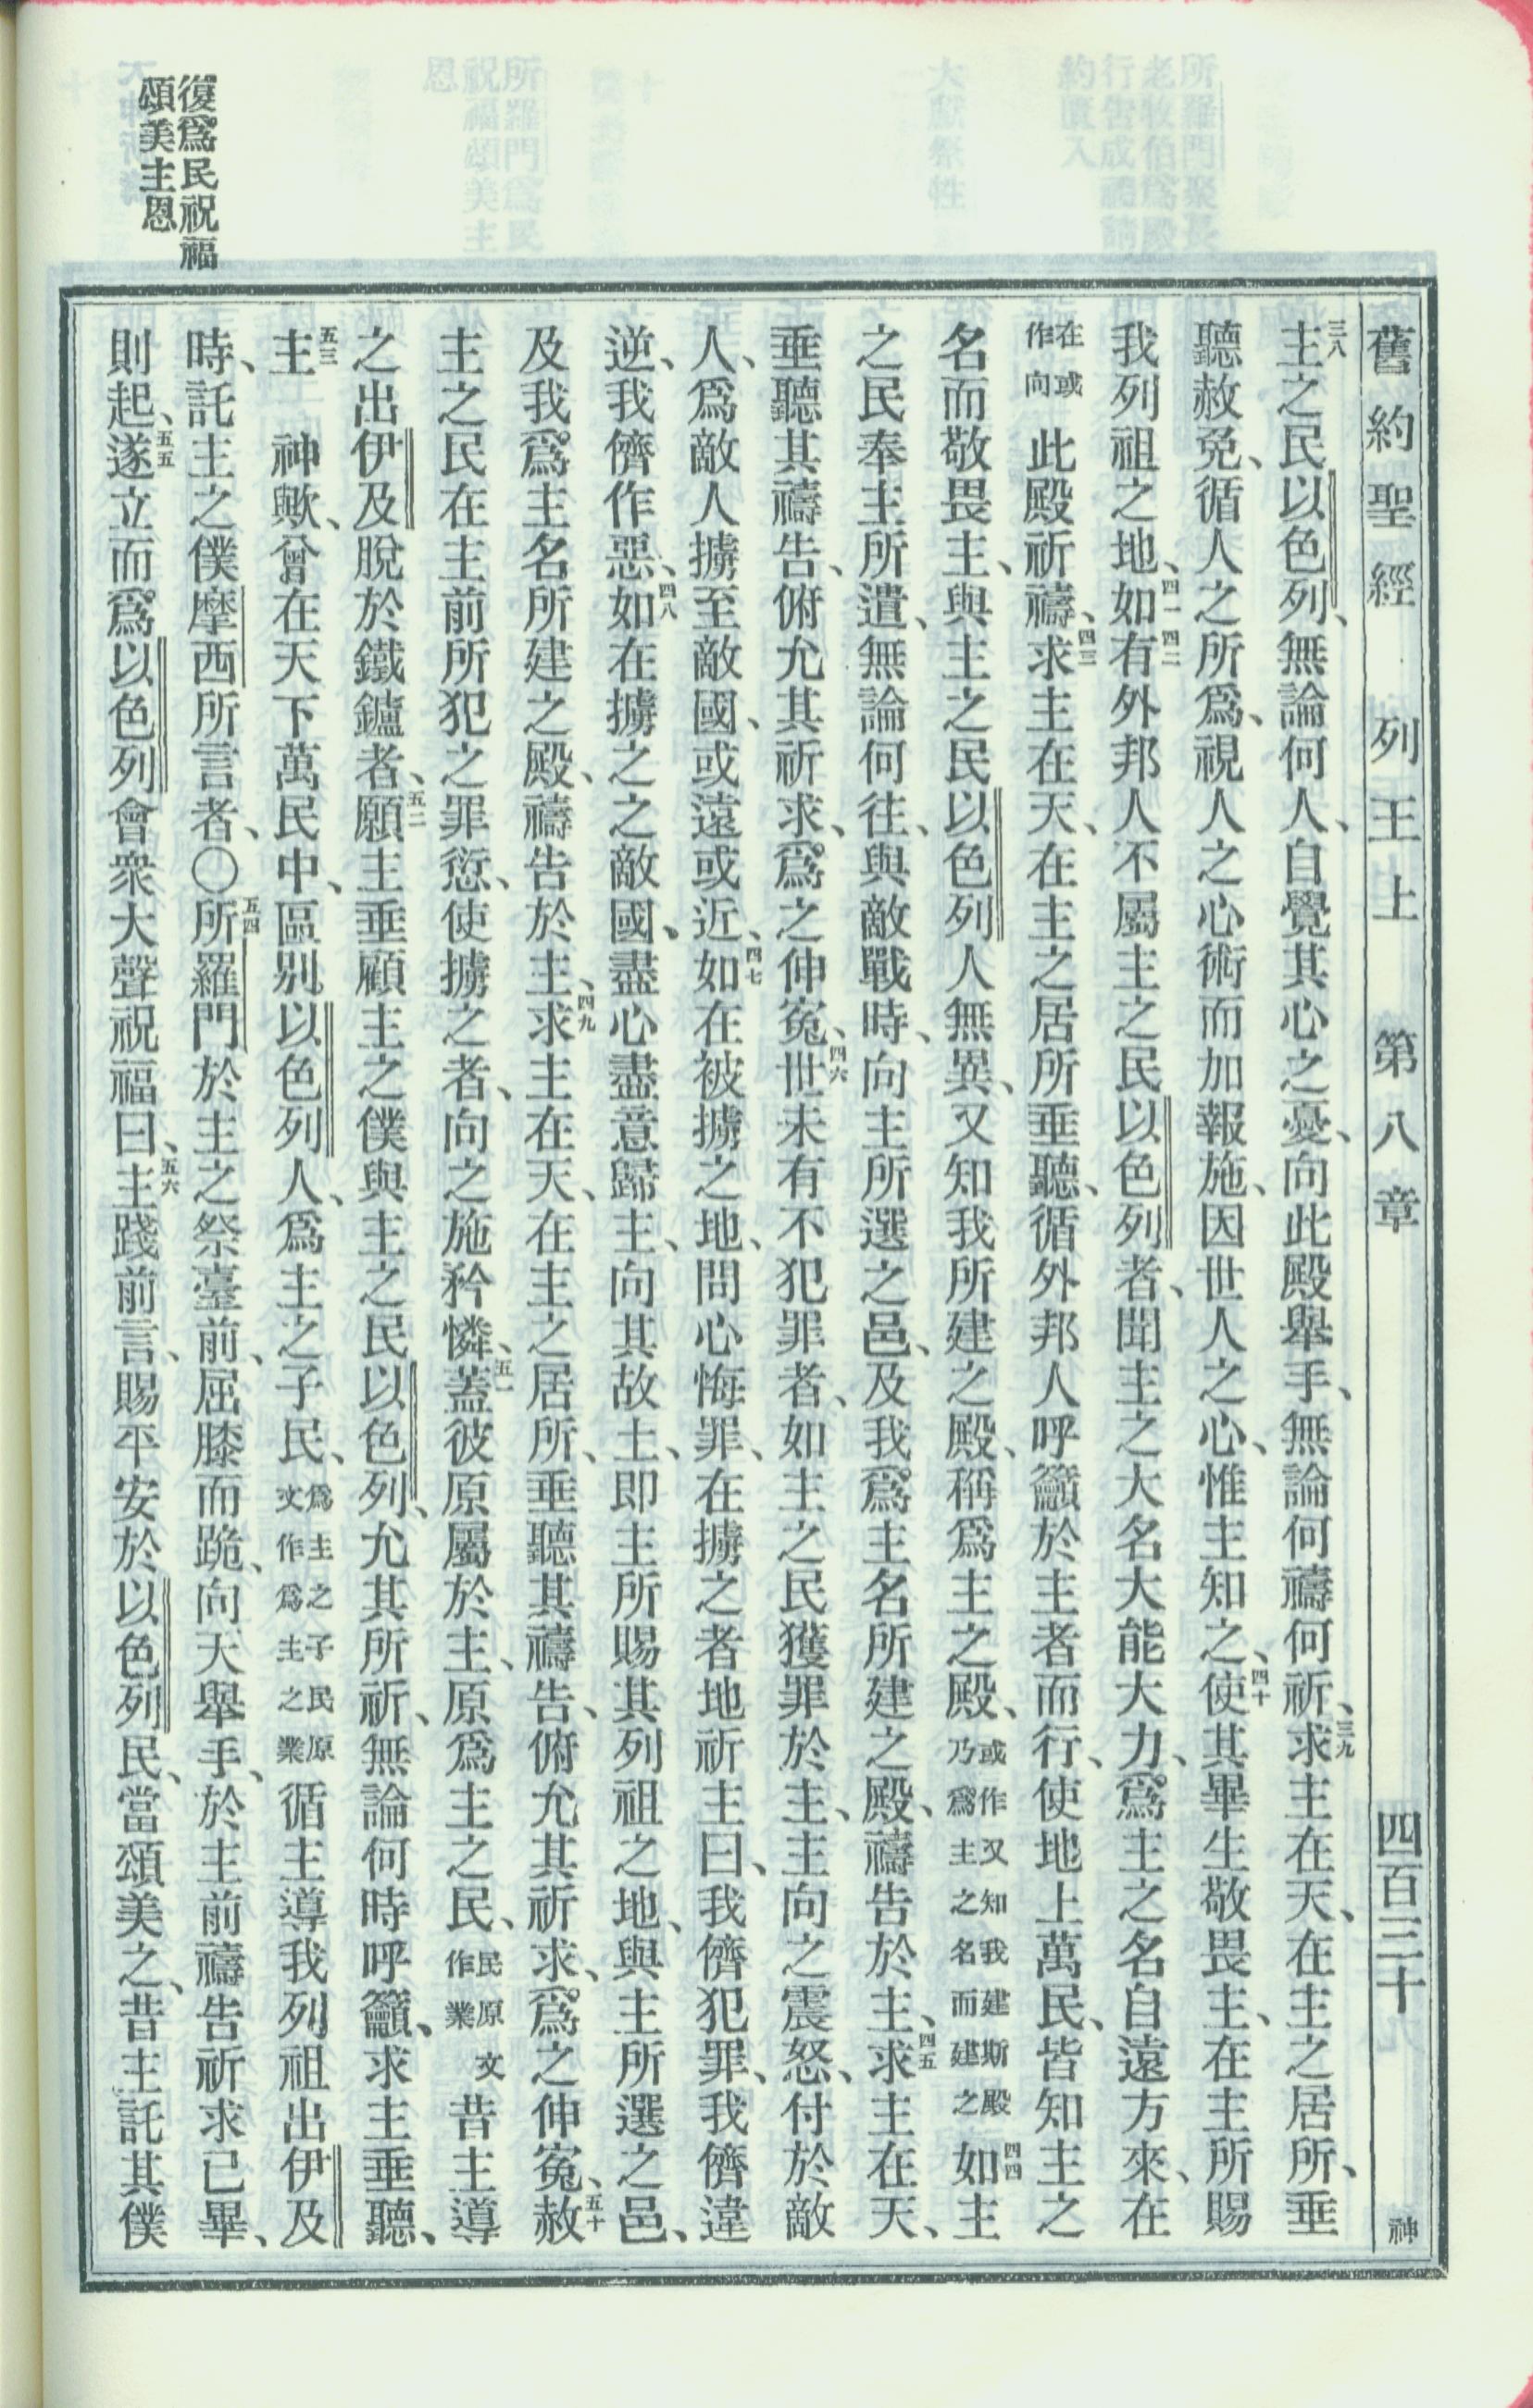 舊約聖經　列王上　第八章　四百三十　神
三八主之民以色列、無論何人、自覺其心之憂、向此殿舉手、無論何禱何祈、三九求主在天、在主之居所、垂
聽赦免、循人之所爲、視人之心術而加報施、因世人之心、惟主知之、四十使其畢生敬畏主、在主所賜
我列祖之地、四一如四二有外邦人不屬主之民以色列者、聞主之大名大能大力、爲主之名自遠方來、在
在或作向此殿祈禱、四三求主在天、在主之居所垂聽、循外邦人呼籲於主者而行、使地上萬民、皆知主之
名而敬畏主、與主之民以色列人無異、又知我所建之殿、稱爲主之殿、或作又知我建斯殿乃爲主之名而建之四四如主
之民奉主所遣、無論何往、與敵戰時、向主所選之邑、及我爲主名所建之殿、禱告於主、四五求主在天、
垂聽其禱告、俯允其祈求、爲之伸冤、四六世未有不犯罪者、如主之民獲罪於主、主向之震怒、付於敵
人、爲敵人擄至敵國、或遠或近、四七如在被擄之地、問心悔罪、在擄之者地祈主曰、我儕犯罪、我儕違
逆、我儕作惡、四八如在擄之之敵國、盡心盡意歸主、向其故土、即主所賜其列祖之地、與主所選之邑、
及我爲主名所建之殿、禱告於主、四九求主在天、在主之居所、垂聽其禱告、俯允其祈求、爲之伸冤、五十赦
主之民在主前所犯之罪愆、使擄之者、向之施矜憐、五一蓋彼原屬於主、原爲主之民、民原文作業昔主導
之出伊及脫於鐵鑪者、五二願主垂顧主之僕與主之民以色列、允其所祈、無論何時呼籲、求主垂聽、
五三主　神歟、曾在天下萬民中、區別以色列人、爲主之子民、爲主之子民原文作爲主之業循主導我列祖出伊及
時、託主之僕摩西所言者、〇五四所羅門於主之祭臺前、屈膝而跪、向天舉手、於主前禱告祈求已畢、
則起、五五遂立而爲以色列會衆大聲祝福曰、五六主踐前言、賜平安於以色列民、當頌美之、昔主託其僕
復爲民祝福
頌美主恩